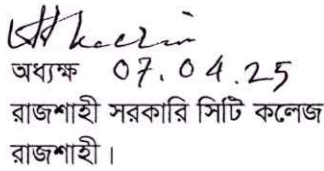 অধ্যক্ষ 07.04.25
রাজশাহী সরকারি সিটি কলেজ
রাজশাহী।